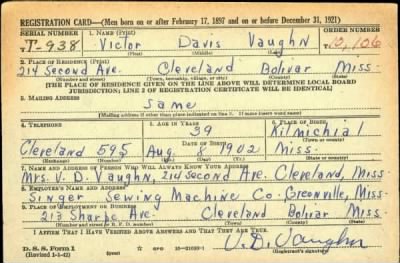 REGISTRATION CARD—(Men born on or after February 17, 1897 and on or before December 31, 1921)
SERIAL NUMBER 1. NAME (Print) ORDER NUMBER
T-938 Victor Davis Vaughn 10,106
(First) (Middle) (Last)
2. PLACE OF RESIDENCE (Print)
214 Second Ave. Cleveland Bolivar Miss.
(Number and street) (Town, township, village, or city) (County) (State)
[THE PLACE OF RESIDENCE GIVEN ON THE LINE ABOVE WILL DETERMINE LOCAL BOARD
JURISDICTION; LINE 2 OF REGISTRATION CERTIFICATE WILL BE IDENTICAL]
3. MAILING ADDRESS
Same
[Mailing address if other than place indicated on line 2. If same insert word same]
4. TELEPHONE 5. AGE IN YEARS 6. PLACE OF BIRTH
39 Kilmichial
DATE OF BIRTH (Town or county)
Cleveland 595 Aug 8 1902 Miss.
(Exchange) (Number) (Mo.) (Day) (Yr.) (State or country)
7. NAME AND ADDRESS OF PERSON WHO WILL ALWAYS KNOW YOUR ADDRESS
Mrs. V. D. Vaughn, 214 Second Ave. Cleveland, Miss.
8. EMPLOYER'S NAME AND ADDRESS
Singer Sewing Machine Co. Greenville, Miss.
9. PLACE OF EMPLOYMENT OR BUSINESS
213 Sharpe Ave. Cleveland Bolivar Miss.
(Number and street or R. F. D. number) (Town) (County) (State)
I AFFIRM THAT I HAVE VERIFIED ABOVE ANSWERS AND THAT THEY ARE TRUE.
D. S. S. Form 1 GPO 16—21630-1 V. D. Vaughn
(Revised 1-1-42) (over) (Registrant's signature)